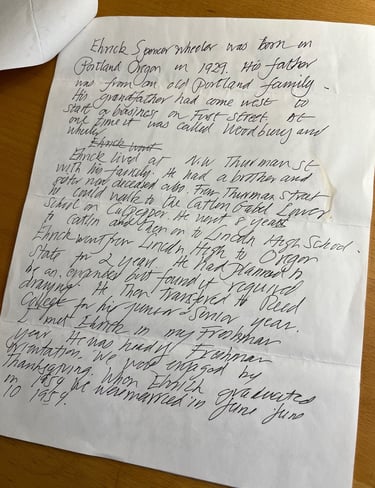 Ehrick Spencer Wheeler was born in
Portland Oregon in 1929. His father
was from an old Portland family.
His grandfather had come west to
start a business on First street. At
one time it was called Woodbury and
wheeler
Ehrick went
Ehrick lived at N.W Thurman st
with his family. He had a brother and
sister now deceased also. From Thurman street
he could walk to the Catlin Gabel Lower
School on Culpepper. He went 8 years
to Catlin and then on to Lincoln High School.
Ehrick went from Lincoln High to Oregon
State for 2 years. He had planned to
be an but found it required
drawing. He then transfered to Reed
College for his junior & Senior year.
I met Ehrick in my Freshman
year. He was head of Freshman
Orientation. We were engaged by
Thanksgiving. When Ehrick graduated
in 1959 we were married in June June
10 1959.